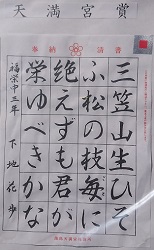 天満宮賞
奉納 清書
三笠山生ひそ
ふ松の枝毎に
絶えずも君が
栄ゆべきかな
福栄中三年 下地佑歩